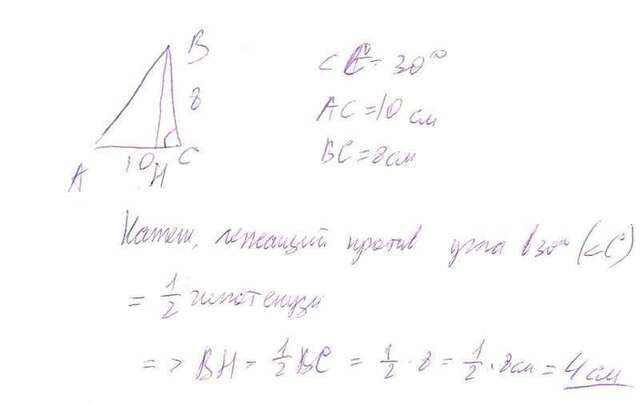 B
∠C = 30°
8
AC = 10 см
BC = 8 см
10
C
A
H
Катет, лежащий против угла в 30° (∠C)
= 1/2 гипотенузы
=> BH = 1/2 BC = 1/2 · 8 = 1/2 · 8 см = 4 см